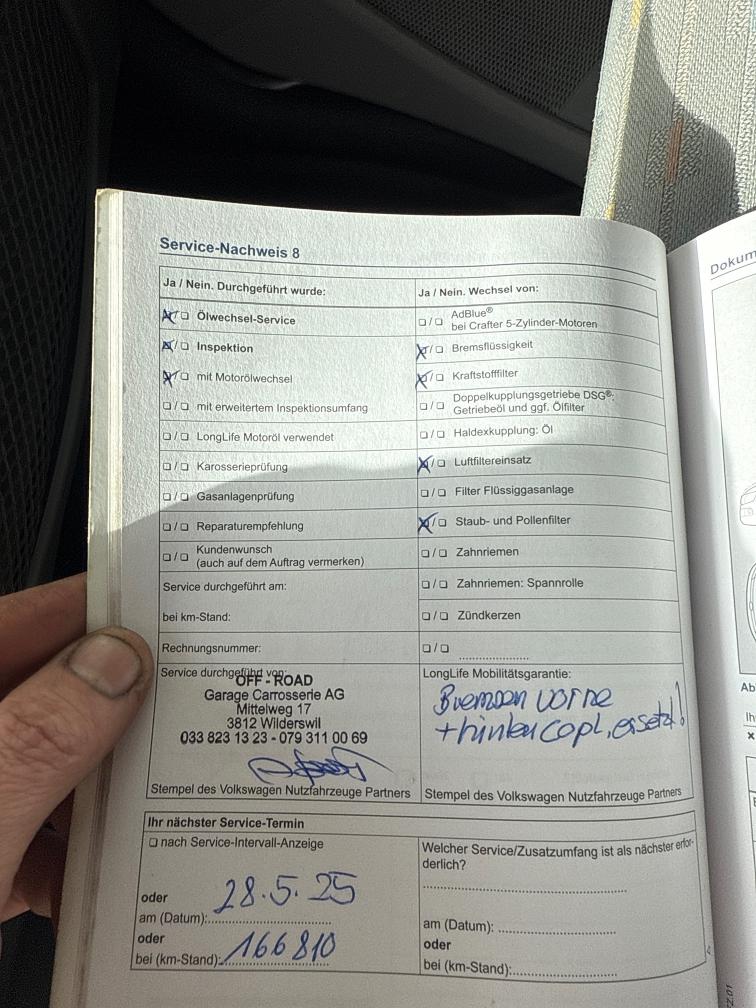 Service-Nachweis 8
Ja / Nein. Durchgeführt wurde:
☒/☐ Ölwechsel-Service
☒/☐ Inspektion
☒/☐ mit Motorölwechsel
☐/☐ mit erweitertem Inspektionsumfang
☐/☐ LongLife Motoröl verwendet
☐/☐ Karosserieprüfung
☐/☐ Gasanlagenprüfung
☐/☐ Reparaturempfehlung
☐/☐ Kundenwunsch
(auch auf dem Auftrag vermerken)
Service durchgeführt am:
bei km-Stand:
Rechnungsnummer:
Ja / Nein. Wechsel von:
☐/☐ AdBlue®
bei Crafter 5-Zylinder-Motoren
☒/☐ Bremsflüssigkeit
☒/☐ Kraftstofffilter
☐/☐ Doppelkupplungsgetriebe DSG®:
Getriebeöl und ggf. Ölfilter
☐/☐ Haldexkupplung: Öl
☒/☐ Luftfiltereinsatz
☐/☐ Filter Flüssiggasanlage
☒/☐ Staub- und Pollenfilter
☐/☐ Zahnriemen
☐/☐ Zahnriemen: Spannrolle
☐/☐ Zündkerzen
☐/☐ ....................
Service durchgeführt von:
OFF - ROAD
Garage Carrosserie AG
Mittelweg 17
3812 Wilderswil
033 823 13 23 - 079 311 00 69
Stempel des Volkswagen Nutzfahrzeuge Partners
LongLife Mobilitätsgarantie:
Bremsen vorne
+ hinten copl. ersetzt!
Stempel des Volkswagen Nutzfahrzeuge Partners
Ihr nächster Service-Termin
☐ nach Service-Intervall-Anzeige
oder
am (Datum): 28.5.25
oder
bei (km-Stand): 166 810
Welcher Service/Zusatzumfang ist als nächster erfor-
derlich?
am (Datum): ....................
oder
bei (km-Stand): ....................
Dokum
Ab
Ih